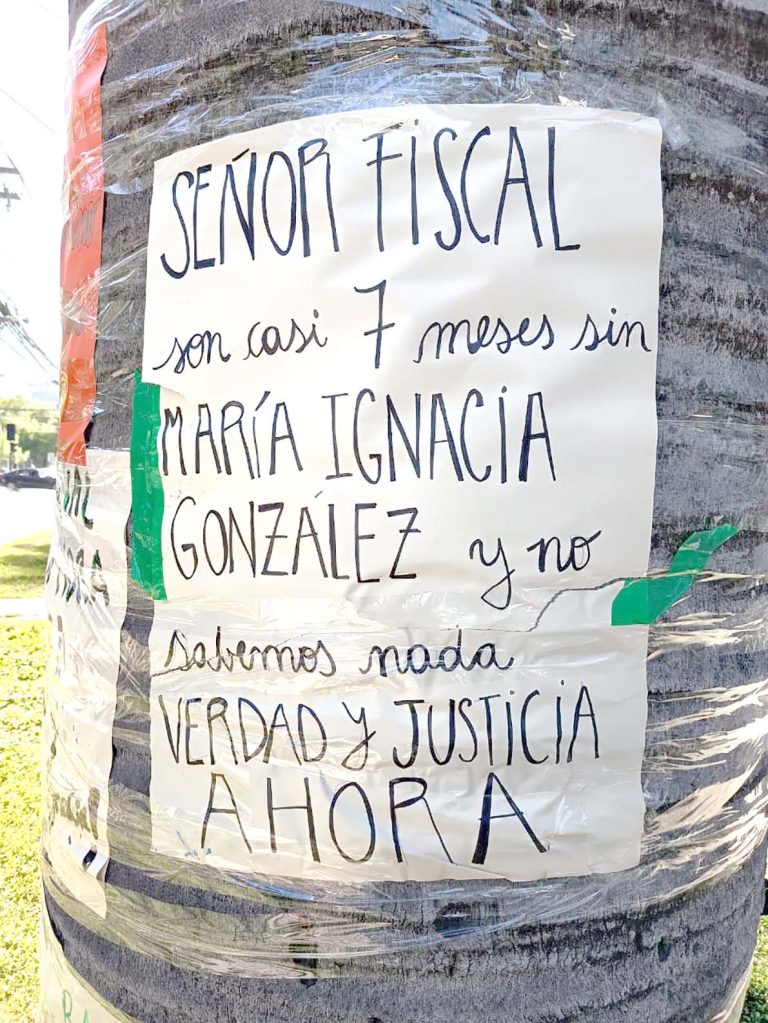 SEÑOR FISCAL
son casi 7 meses sin
MARÍA IGNACIA
GONZÁLEZ y no
sabemos nada
VERDAD y JUSTICIA
AHORA